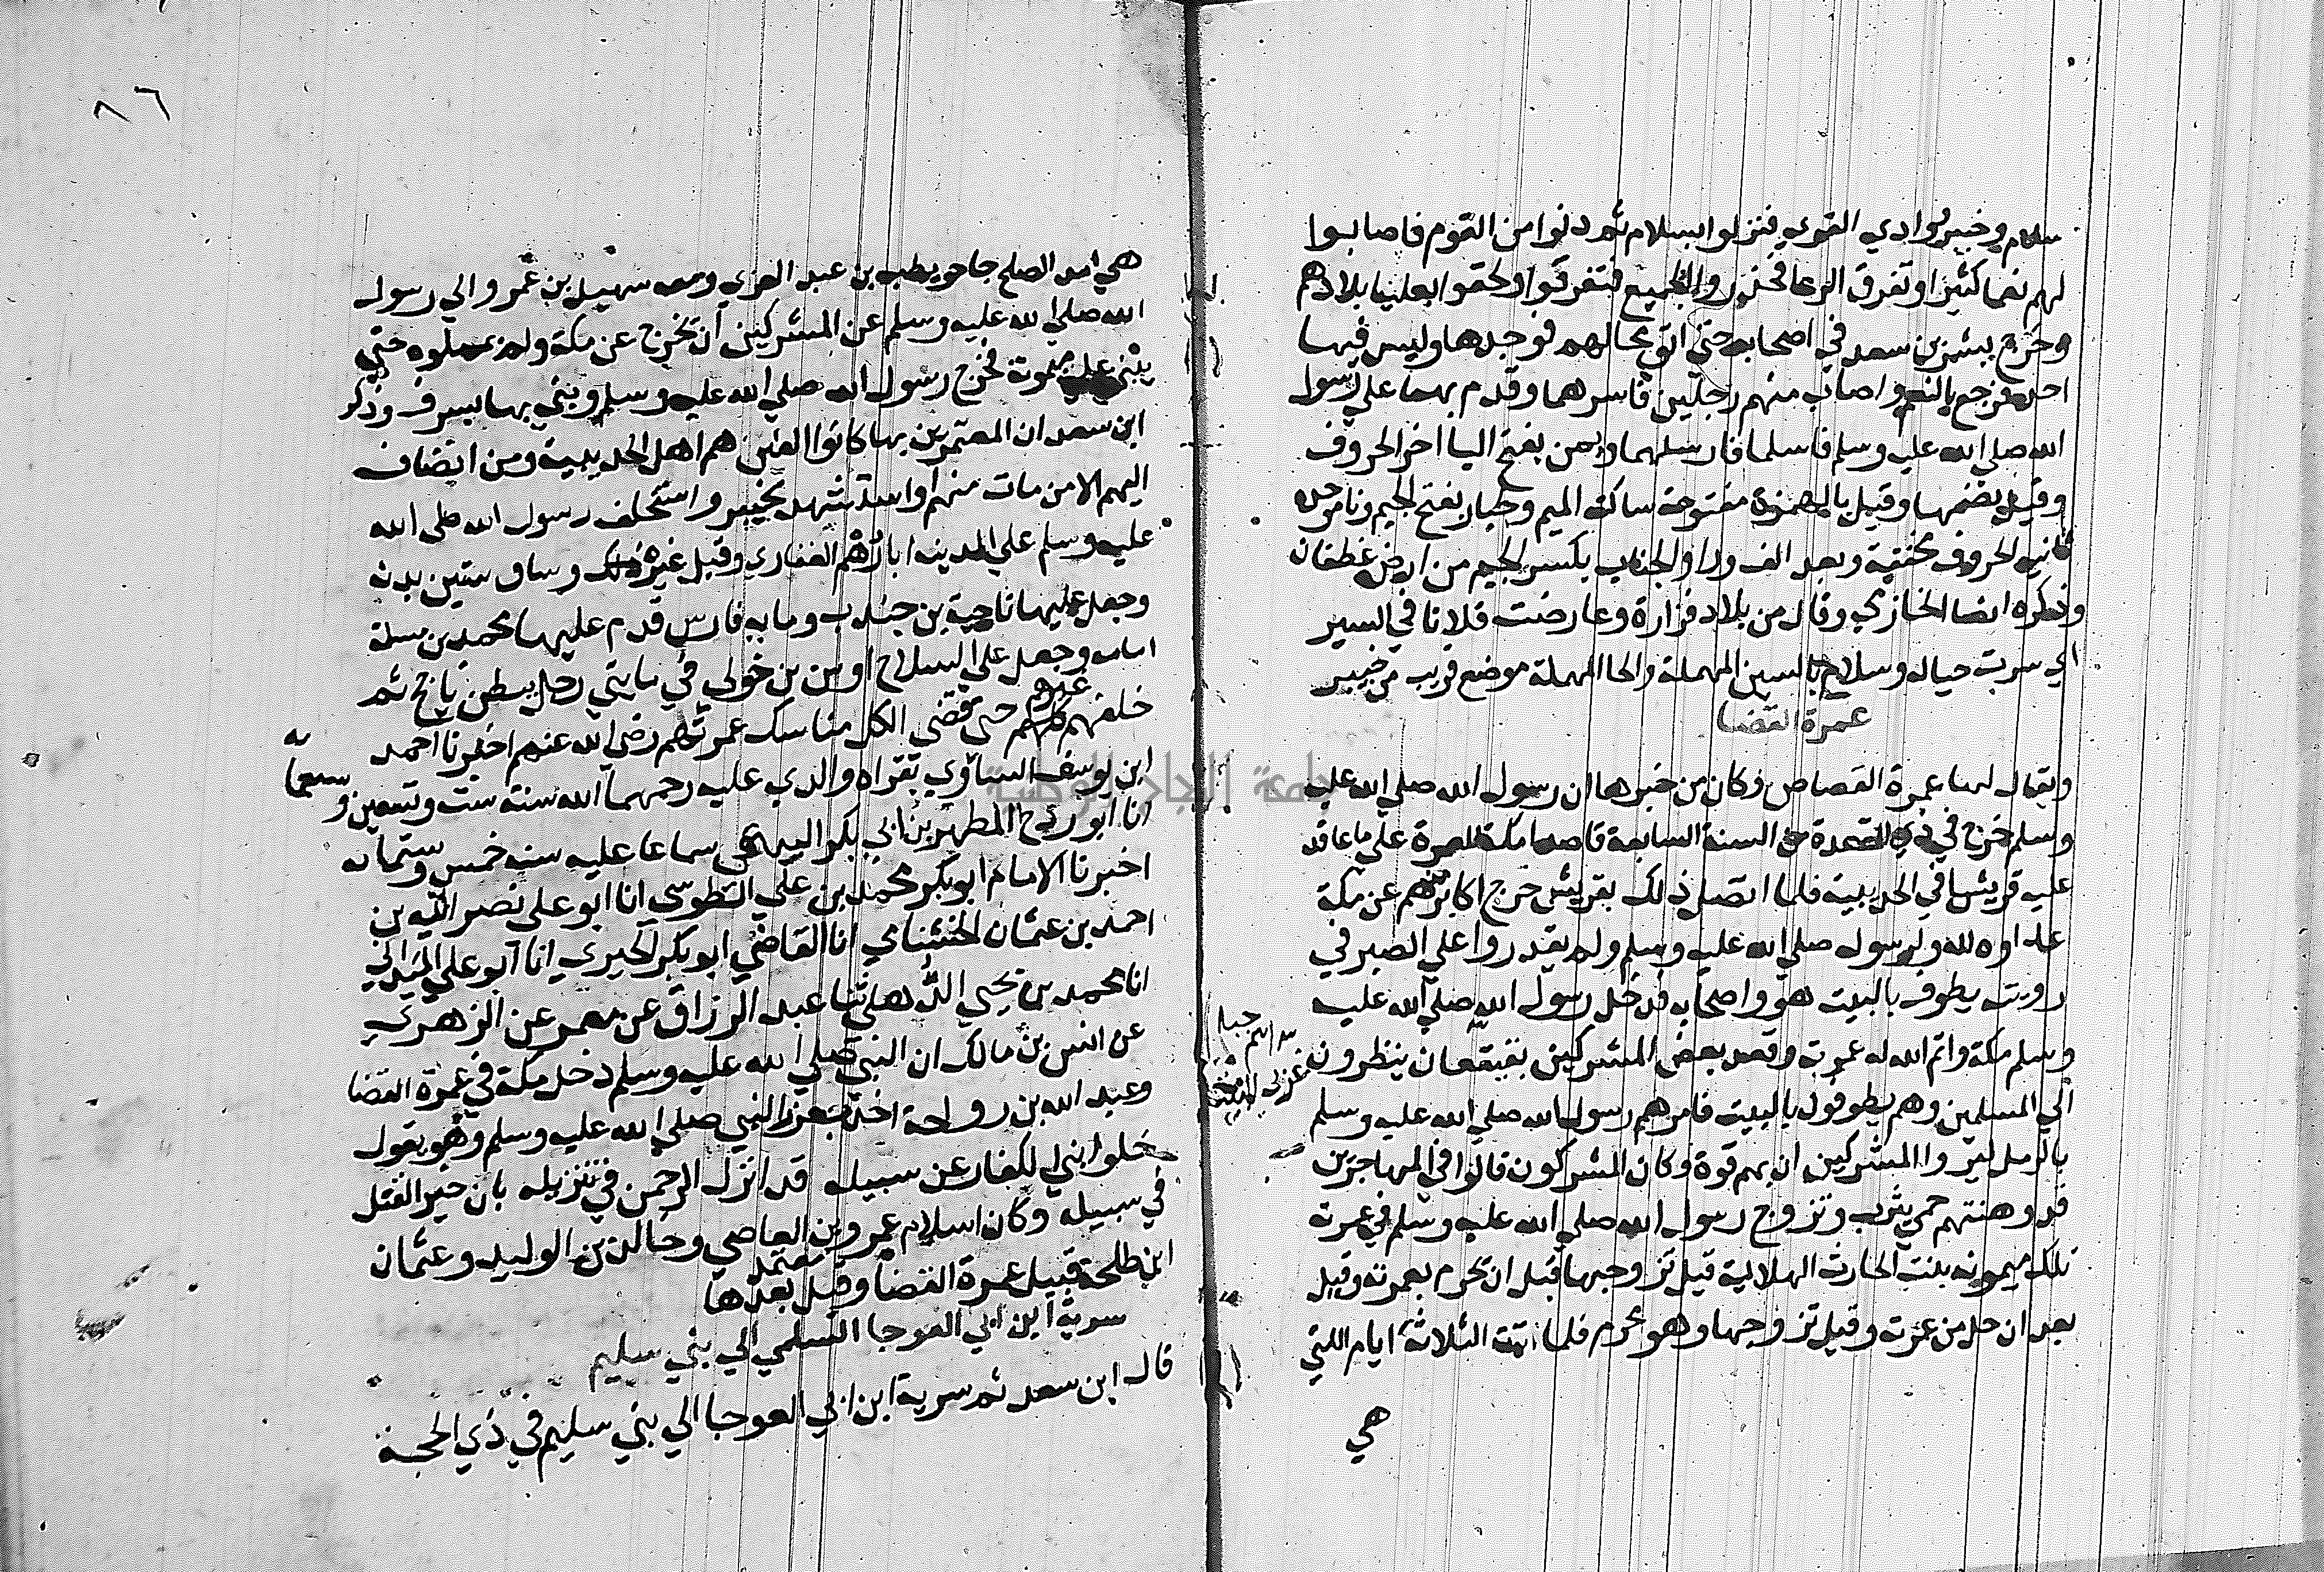 سلام وخيبر ووادي القري فنزلوا بسلام ثم دنوا من القوم فاصابوا
لهم نعما كثيرا وتفرق الرعا فحذروا الجميع فتفرقوا ولحقوا بعليا بلادهم
وخرج بشير بن سعد في اصحابه حتي اتي محالهم فوجدها وليس فيها
احد فرجع بالنعم واصاب منهم رجلين فاسرهما وقدم بهما علي رسول
الله صلي الله عليه وسلم فاسلما فارسلهما ويمن بفتح اليا اخر الحروف
وقيل بضمها وقيل بالهمزة مفتوحة ساكنة الميم وجبار بفتح الجيم
ثانيه الحروف مخففة وبعد الف ورا والجناب بكسر الجيم من ارض غطفان
وذكره ايضا الحازمي وقال من بلاد فزارة وعارضت فلانا في السير
اي سرت حياله وسلاح بالسين المهملة والحا المهملة موضع قريب من خيبر
عمرة القضا
ويقال لها عمرة القصاص وكان من خبرها ان رسول الله صلي الله عليه
وسلم خرج في ذي القعدة من السنة السابعة قاصدا مكة للعمرة علي ما عاقد
عليه قريشا في الحديبية فلما اتصل ذلك بقريش خرج اكابرهم عن مكة
عداوه لله ولرسوله صلي الله عليه وسلم ولم يقدروا علي الصبر في
رويته يطوف بالبيت هو واصحابه فدخل رسول الله صلي الله عليه
وسلم مكة واتم الله له عمرته وقعد بعض المشركين بقعيقعان ينظرون
الي المسلمين وهم يطوفون بالبيت فامرهم رسول الله صلي الله عليه وسلم
بالرمل ليروا المشركين ان بهم قوة وكان المشركون قالوا في المهاجرين
قد وهنتهم حمي يثرب وتزوج رسول الله صلي الله عليه وسلم في عمرته
تلك ميمونه بنت الحارث الهلالية قيل تزوجها قبل ان يحرم بعمرته وقيل
بعد ان حل من عمرته وقيل تزوجها وهو محرم فلما تمت الثلاثة ايام اللتي
هي
اسم جبل
٨٦
هي امد الصلح جا حويطب بن عبد العزي ومعه سهيل بن عمرو الي رسول
الله صلي الله عليه وسلم عن المشركين ان يخرج عن مكة ولم يمهلوه حتي
يبني علي ميمونة فخرج رسول الله صلي الله عليه وسلم وبني بها بسرف وذكر
ابن سعد ان المعتمرين بها كانوا الفين هم اهل الحديبية ومن انضاف
اليهم الا من مات منهم او استشهد بخيبر واستخلف رسول الله صلي الله
عليه وسلم علي المدينه ابا رهم الغفاري وقيل غيره ذلك وساق ستين بدنه
وجعل عليها ناجية بن جندب وماية فارس قدم عليها محمد بن مسلمة
امامه وجعل علي السلاح اوس بن خولي في مايتي رجل ببطن ياجج ثم
خلفهم غيرهم حتي قضي الكل مناسك عمرتهم رضي الله عنهم اخبرنا احمد
ابن يوسف الساوي بقراه والدي عليه رحمهما الله سنة ست وتسعين وستماية
انا ابو روح المطهر بن ابي بكر البيهقي سماعا عليه سنه خمس وستمائه
اخبرنا الامام ابو بكر محمد بن علي الطوسي انا ابو علي نصر الله بن
احمد بن عثمان الخشنامي انا القاضي ابو بكر الحيري انا ابو علي الميداني
انا محمد بن يحيي الذهلي ثنا عبد الرزاق عن معمر عن الزهري
عن انس بن مالك ان النبي صلي الله عليه وسلم دخل مكة في عمرة القضا
وعبد الله بن رواحة اخذ بغرز النبي صلي الله عليه وسلم وهو يقول
خلوا بني الكفار عن سبيله قد انزل الرحمن في تنزيله بان خير القتل
في سبيله وكان اسلام عمرو بن العاصي وخالد بن الوليد وعثمان
ابن طلحة قبيل عمرة القضا وقيل بعدها
سرية ابن ابي العوجا السلمي الي بني سليم
قال ابن سعد ثم سرية ابن ابي العوجا الي بني سليم في ذي الحجة